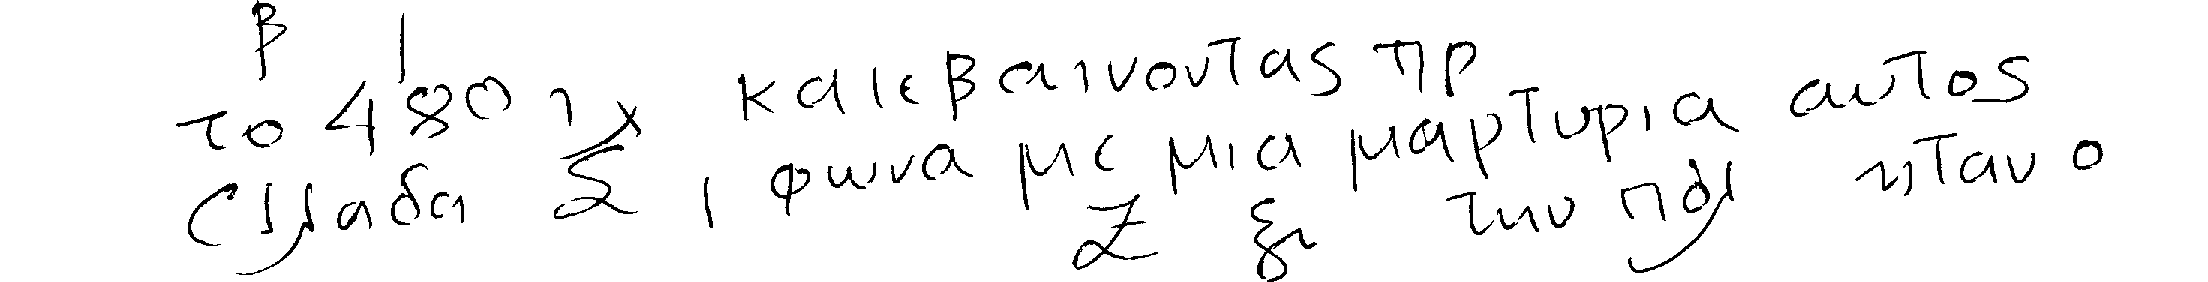 β |
το 480 πχ κατεβαινοντας πρ
Ελλαδα Σ , φωνα με μια μαρτυρια αυτος
Ζ ξι την πολ ηταν ο